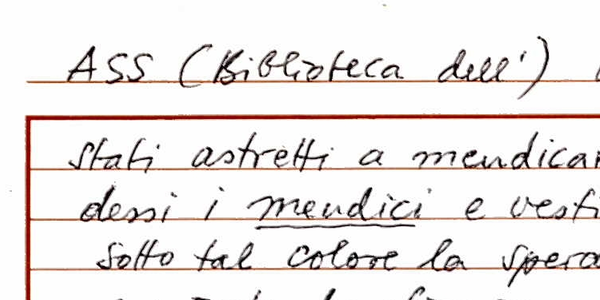 ASS (Biblioteca dell')
stati astretti a mendicar
dessi i mendici e vesti
sotto tal colore la spera